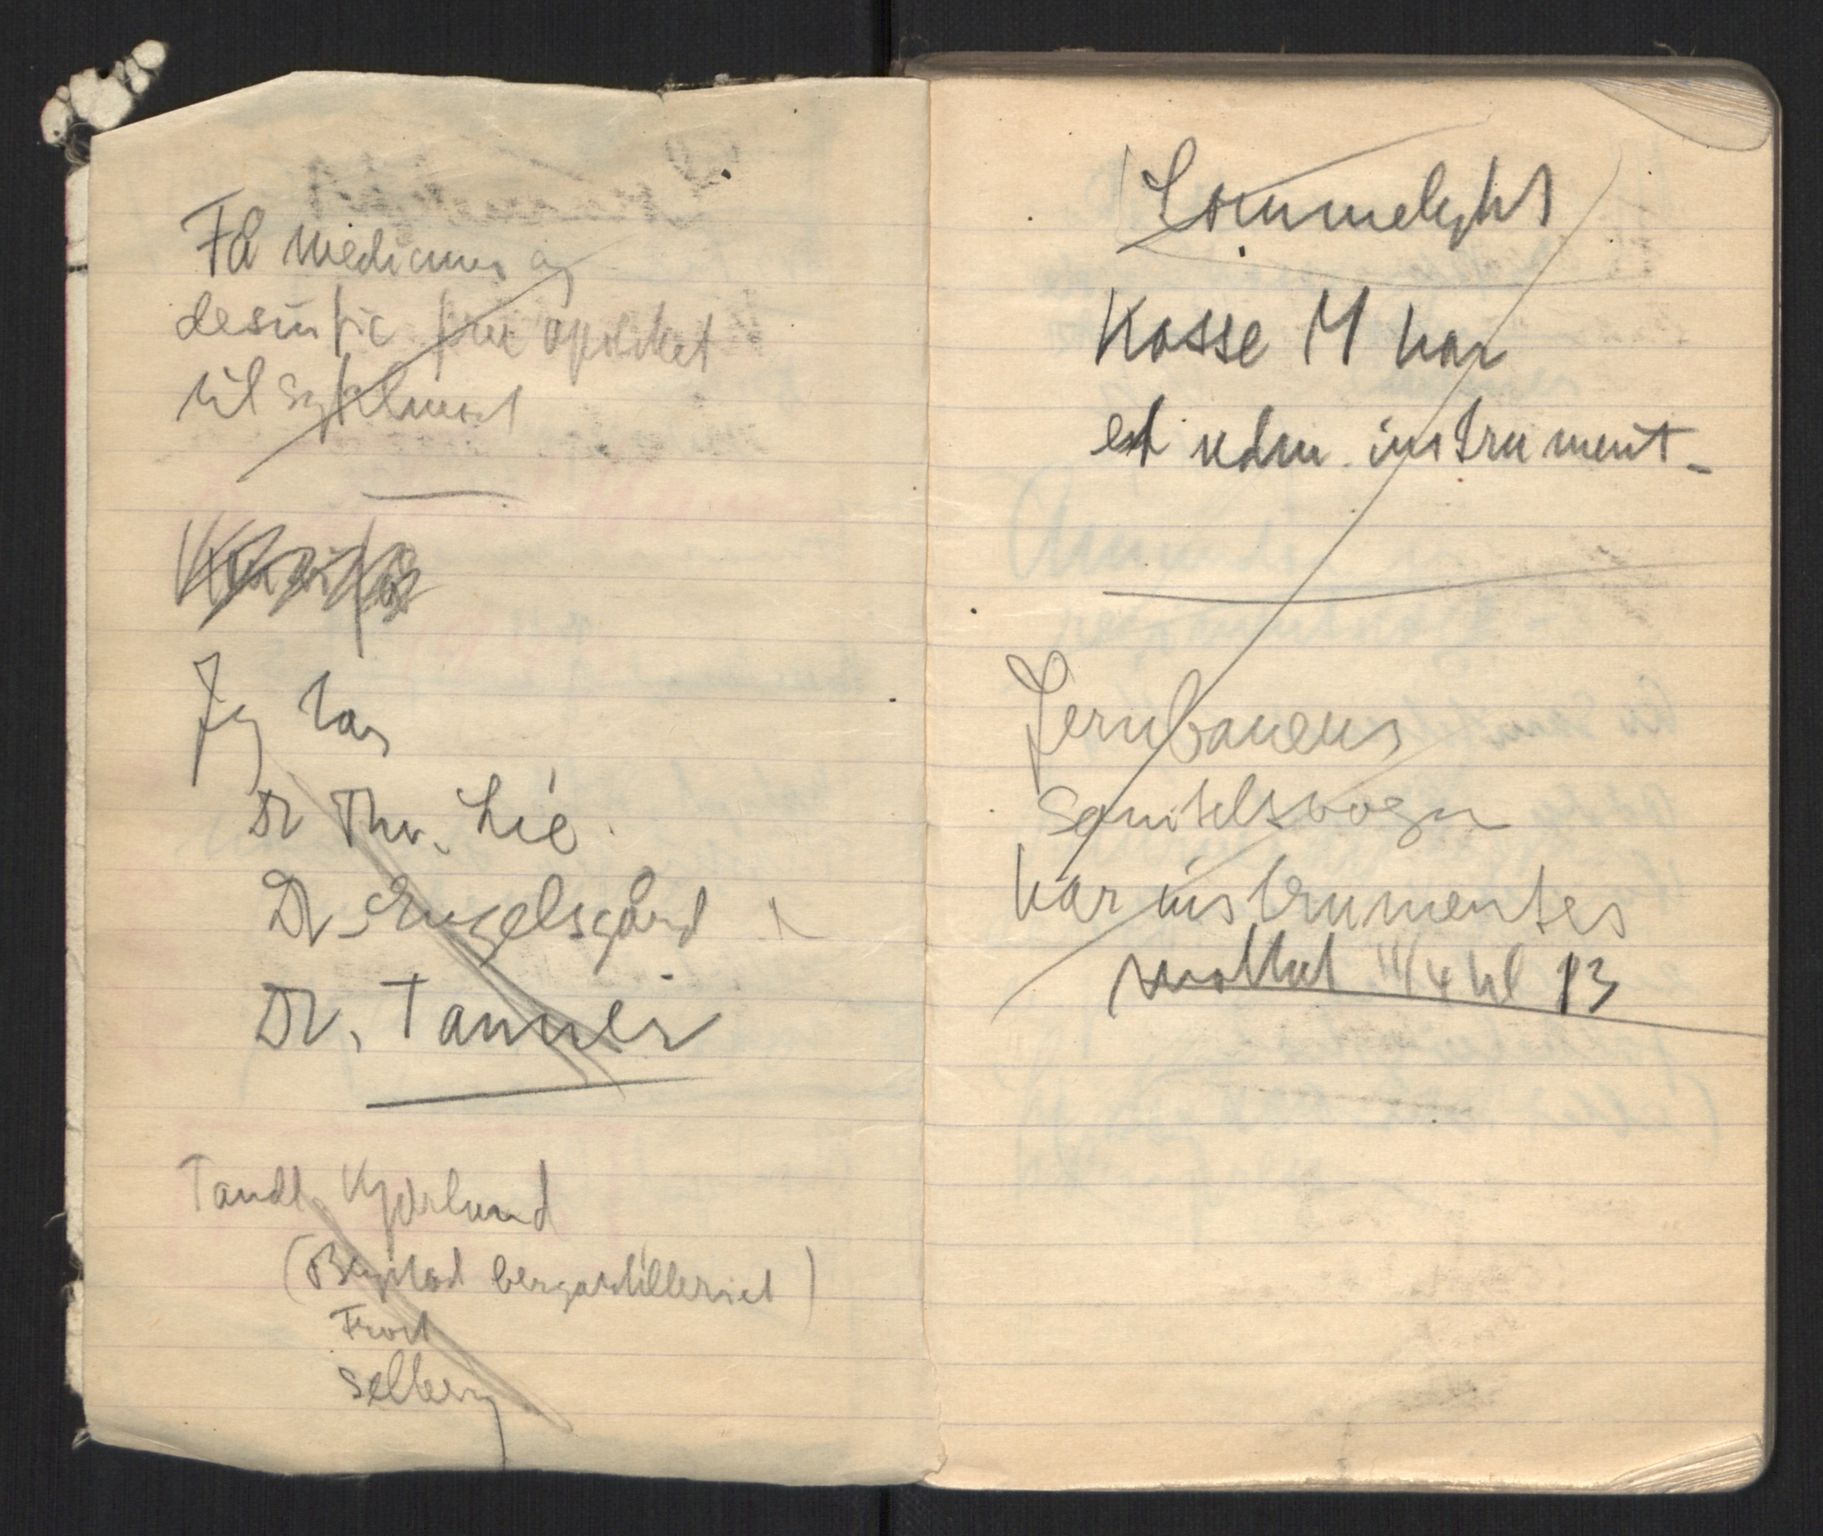 Få mediciner og
desinfic. fra apoteket
til sykehuset
Jeg har
Dr Thv. Lie.
Dr. Engelsgård
Dr. Tanner
Tandl. Kjørlund
(Bergstad bergartilleriet)
Frost
Selberg
Lommelykt
Kasse M har
et udm. instrument-
Jernbanens
Sanitetsvogn
har instrumenter
mottat 11/4 kl 13